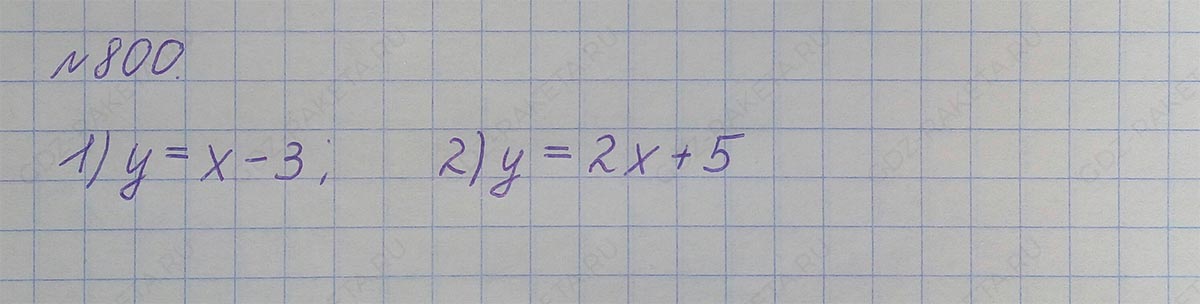 №800.
1) y = x - 3;    2) y = 2x + 5
GDZ-RAKETA.RU